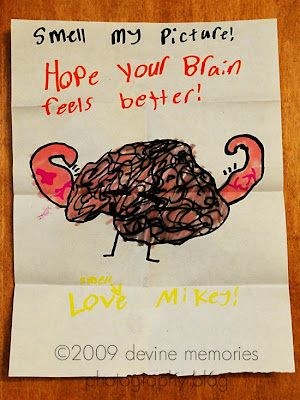 Smell my Picture!
Hope Your Brain
feels better!
smell
Love Mikey!
©2009 devine memories
photography blog